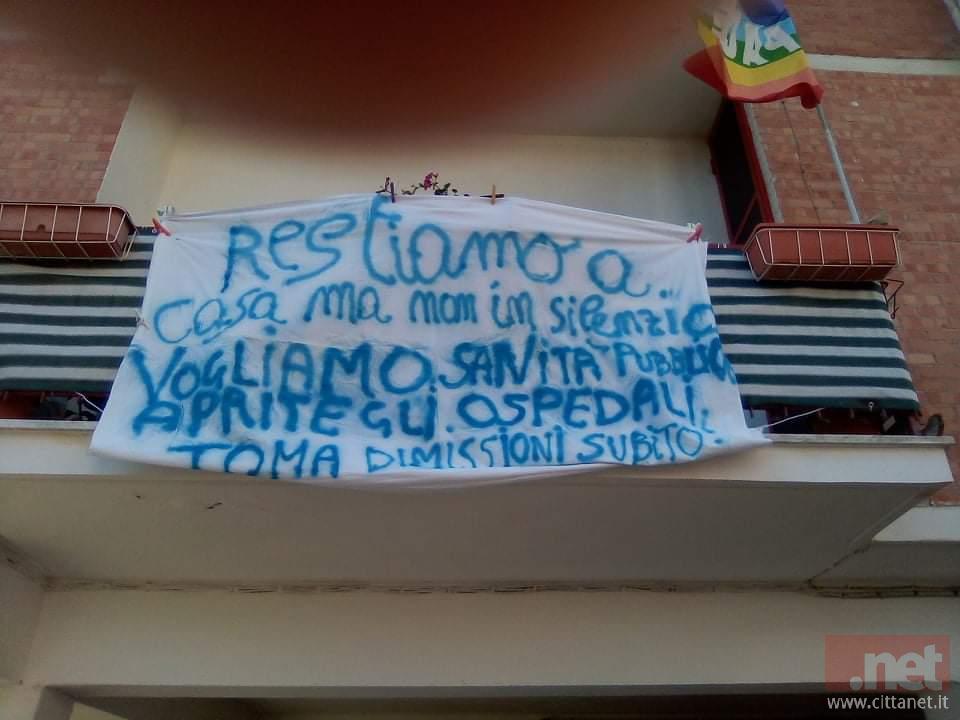 Restiamo a...
casa ma non in silenzio
VOGLIAMO SANITÀ PUBBLICA
APRITE GLI OSPEDALI.
TOMA DIMISSIONI SUBITO!
.net
www.cittanet.it